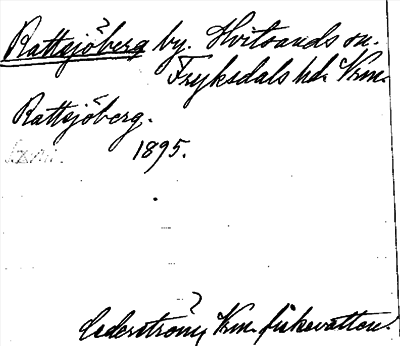 Rattsjöberg by. Hvitsands sn.
Fryksdals hd. Vrm.
Rattsjöberg.
1895.
Cederström, Vrm. fiskevatten.